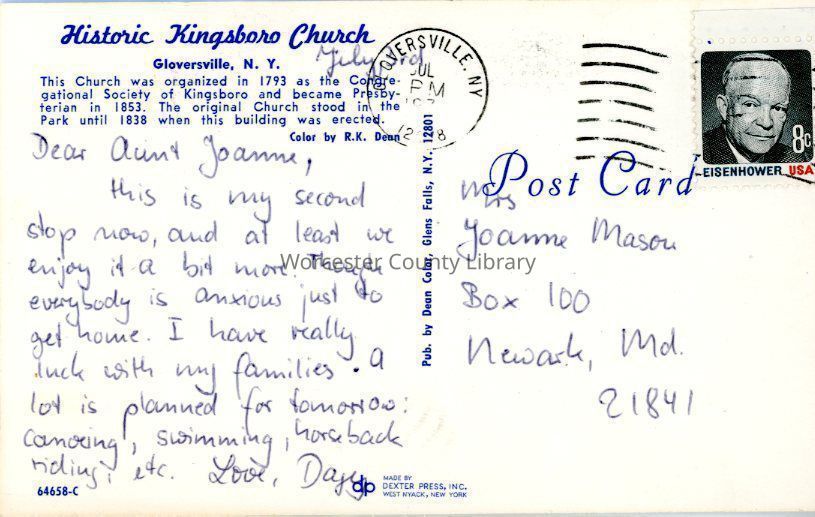 Historic Kingsboro Church
Gloversville, N. Y.
This Church was organized in 1793 as the Congre-
gational Society of Kingsboro and became Presby-
terian in 1853. The original Church stood in the
Park until 1838 when this building was erected.
Color by R.K. Dean
July 3rd
Dear Aunt Joanne,
this is my second
stop now, and at least we
enjoy it a bit more. Though
everybody is anxious just to
get home. I have really
luck with my families. A
lot is planned for tomorrow:
canoeing, swimming, horseback
riding, etc. Love,
64658-C
Pub. by Dean Color, Glens Falls, N.Y. 12801
dp
MADE BY
DEXTER PRESS, INC.
WEST NYACK, NEW YORK
GLOVERSVILLE, NY
JUL
PM
Post Card
EISENHOWER USA
8c
Mrs
Joanne Mason
Box 100
Newark, Md.
21841
Worcester County Library